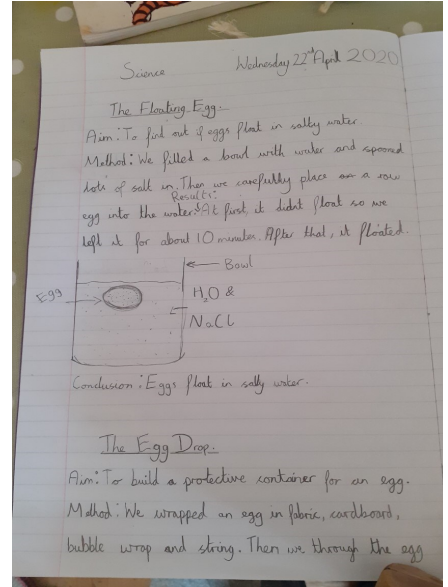 Science
Wednesday 22nd April 2020
The Floating Egg.
Aim: To find out if eggs float in salty water.
Method: We filled a bowl with water and spooned
lots of salt in. Then we carefully place a raw
Results:
egg into the water. At first, it didnt float so we
left it for about 10 minutes. After that, it floated.
Bowl
Egg
H2O &
NaCl
Conclusion: Eggs float in salty water.
The Egg Drop.
Aim: To build a protective container for an egg.
Method: We wrapped an egg in fabric, cardboard,
bubble wrap and string. Then we through the egg